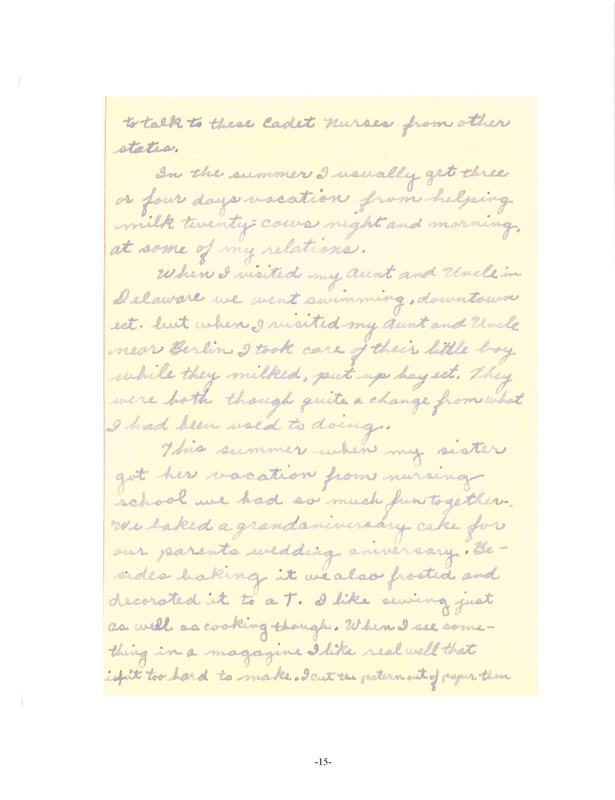 to talk to these Cadet Nurses from other
states.
In the summer I usually get three
or four days vacation from helping
milk twenty-cows night and morning,
at some of my relations.
When I visited my Aunt and Uncle in
Delaware we went swimming, downtown
ect. but when I visited my Aunt and Uncle
near Berlin I took care of their little boy
while they milked, put up hay ect. They
were both though quite a change from what
I had been used to doing.
This summer when my sister
got her vacation from nursing
school we had so much fun together.
We baked a grand aniversary cake for
our parents wedding aniversary. Be-
sides baking it we also frosted and
decorated it to a T. I like sewing just
as well as cooking though. When I see some-
thing in a magazine I like real well that
isn't too hard to make. I cut the patern out of paper then
-15-